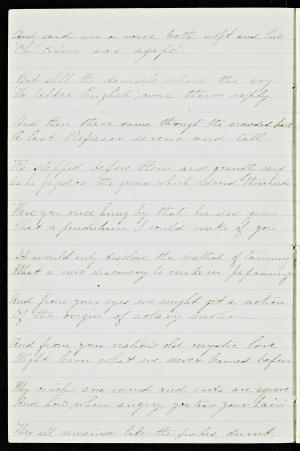 And said in a voice both soft and low
"Oh! Eimi sas agapo"

But still the damsels echoed the cry
"No talkee English", was theire reply.

And then there came through the crowded hall
A last Professor serene and tall

He stepped before them and grandly said
as he gazed on the gems which adorned

"Were you once hung by that
What a pendulum I could make of you

It would only disclose the method of
What a new discovery to make in

And from your eyes we might get a notion
Of the origin of rotary motion.

And from your nation's old mystic lore
Might learn what we never learned before

Why circles are round and roots are square
And how when angry you tear your hair"

They all remained like the fishes, dumb,